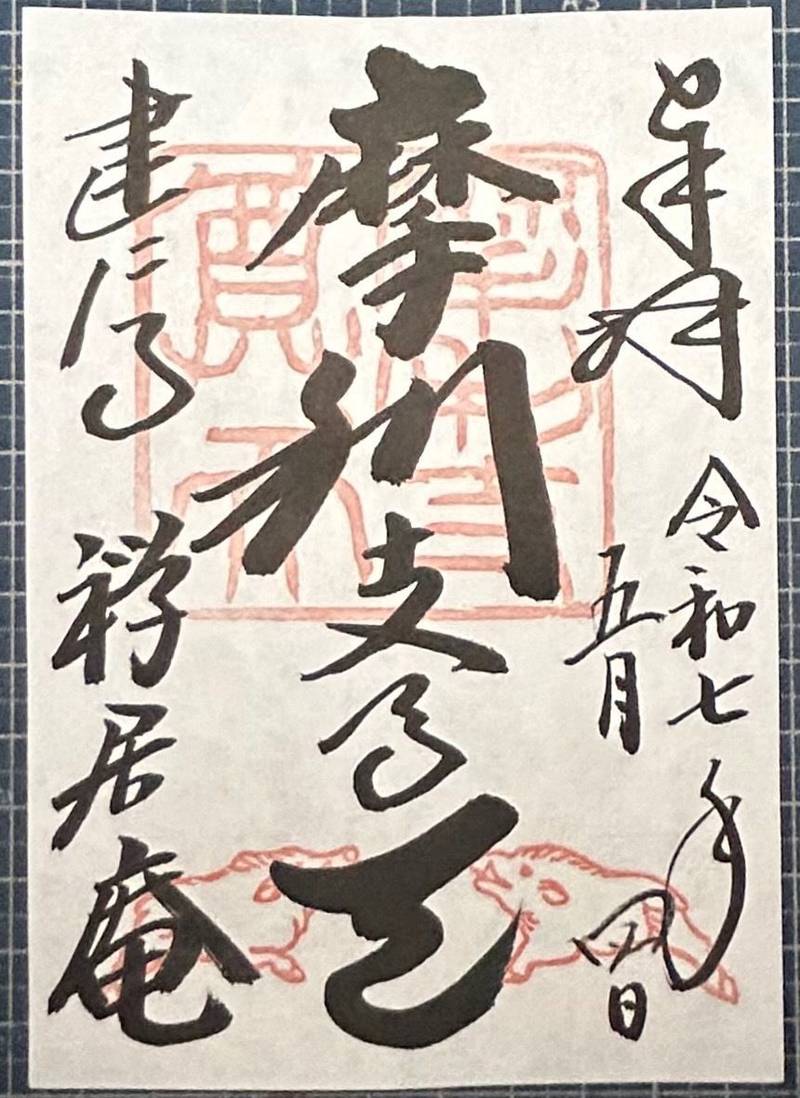 奉拝
令和七年
五月
四日
摩利支尊天
建仁寺
禅居庵